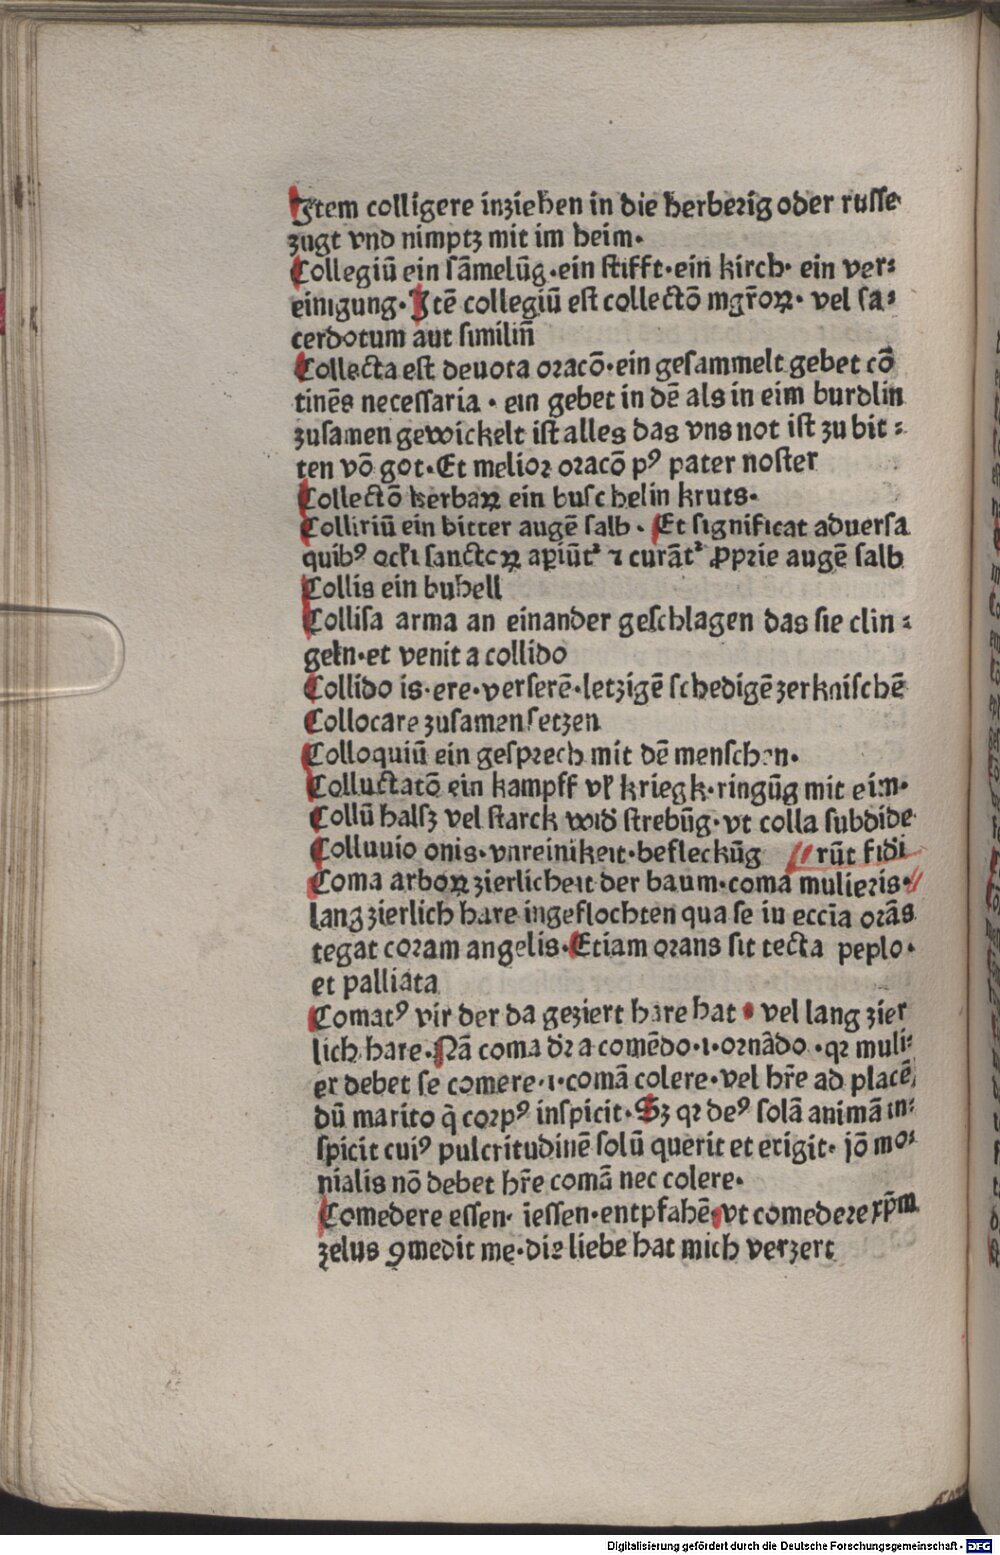 Jtem colligere inziehen in die herberig oder russe
zugt vnd nimptz mit im heim.
Collegiū ein sāmelūg·ein stifft·ein kirch· ein ver⸗
einigung·Jtē collegiū est collectō mgr̄oꝝ· vel sa⸗
cerdotum aut similiū
Collecta est deuota oracō·ein gesammelt gebet cō
tinēs necessaria · ein gebet in dē als in eim burdlin
zusamen gewickelt ist alles das vns not ist zu bit ⸗
ten vō got·Et melior oracō pꝰ pater noster
Collectō herbaꝝ ein buschelin kruts·
Colliriū ein bitter augē salb · Et significat aduersa
quibꝰ ocł'i sanctoꝝ aꝑiūt᷑ ⁊ curāt᷑ ꝓprie augē salb
Collis ein buhell
Collisa arma an einander geschlagen das sie clin ⸗
geln·et venit a collido
Collido is·ere·verserē·letzigē schedigē zerknischē
Collocare zusamen setzen
Colloquiū ein gesprech mit dē menschen·
Colluctatō ein kampff vł kriegk·ringūg mit eim·
Collū halsz vel starck wid' strebūg·vt colla subdide
Colluuio onis·vnreinikeit·befleckūg rūt fidi
Coma arboꝝ zierlicheit der baum·coma mulieris·
lang zierlich hare ingeflochten qua se in eccīa orās
tegat coram angelis·Etiam orans sit tecta peplo·
et palliata
Comatꝰ vir der da geziert hare hat · vel lang zier
lich hare·Nā coma dr̄ a comēdo·i·ornādo ·qꝛ muli⸗
er debet se comere·i·comā colere·vel hr̄e ad placē
dū marito q̄ corpꝰ inspicit·Sꝫ qꝛ deꝰ solā animā in⸗
spicit cuiꝰ pulcritudinē solū querit et exigit· jō mo⸗
nialis nō debet hr̄e comā nec colere·
Comedere essen· iessen·entpfahē·vt comedere xp̄m
zelus ꝯmedit me·die liebe hat mich verzert
Digitalisierung gefördert durch die Deutsche Forschungsgemeinschaft - DFG